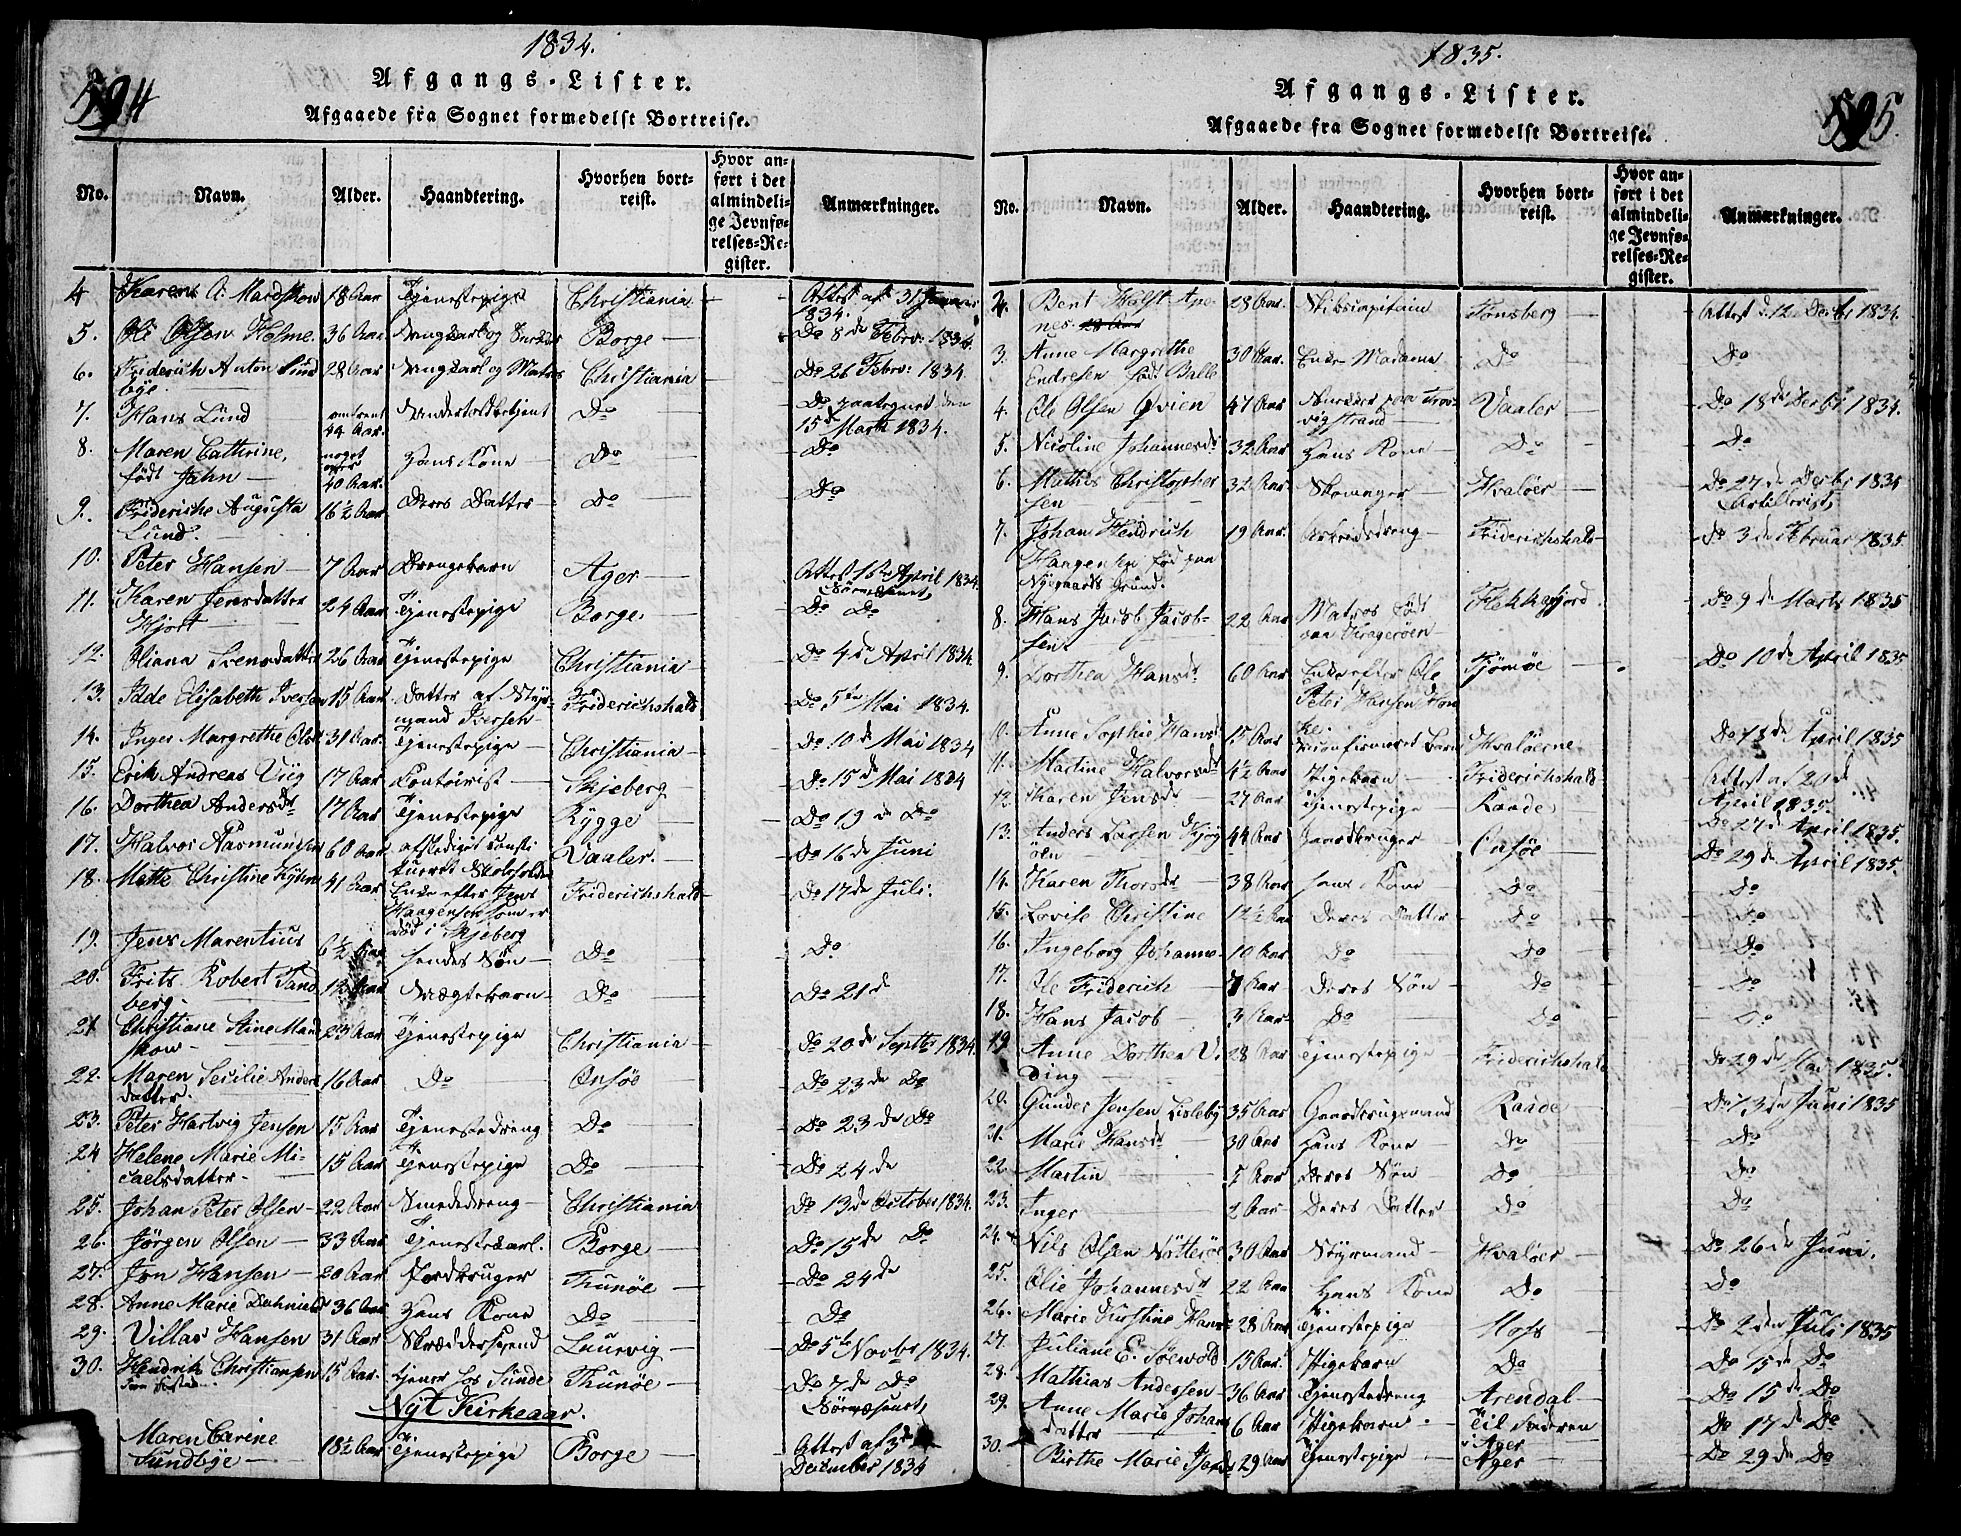 1834.
594
Afgangs-Lister.
Afgaaede fra Sognet formedelst Bortreise.
No. Navn. Alder. Haandtering. Hvorhen bortreist. Hvor anført i det almindelige Jevnførelses-Register. Anmærkninger.
4 Karen A. Mardskow 18 Aar Tjenestepige Christiania Attest af 31 Januar 1834.
5. Ole Olsen Holme 36 Aar Borge Do 8de Febr: 1834.
6. Friderich Anton Sundbye 28 Aar og Matros Christiania Do 26 Febr: 1834.
7. Hans Lund omtrent 44 Aar. Do Do paategnet den 15de Marts 1834.
8. Maren Cathrine, født Jahn noget over 40 Aar. Hans Kone Do Do
9. Friderische Augusta Lund. 16½ Aar Deres Datter Do Do
10. Peter Hansen 7 Aar Drengebarn Ager Attest 16de April 1834.
11. Karen Jensdatter Hjort 24 Aar Tjenestepige Borge. Do Do
12. Oliana Svensdatter 26 Aar Tjenestepige Christiania Do 4de April 1834.
13. Elisabeth Iversen 15 Aar Datter af Styrmand Iversen Friderichshald Do 5te Mai 1834.
14. Inger Margrethe Olsd 31 Aar. Tjenestepige Christiania Do 10de Mai 1834
15. Erik Andreas Viig 17 Aar Contoirist Skjeberg Do 15de Mai 1834
16. Dorthea Andersdr 17 Aar Tjenestepige Rygge Do 19de Do
17. Halvor Rasmundsen 60 Aar afskediget Vaaler. Do 16de Juni
18. Mette Christine 41 Aar Enke efter Jens Haagensen som er død i Skjeberg Friderichshald Do 17de Juli:
19. Jens Marentius 6½ Aar hendes Søn Do Do
20. Frits Robert Sandberg. 1½ Aar Do Do 21de
21 Christiane Stine Mardskow 23 Aar Tjenestepige Christiania Do 20de Septbr 1834.
22. Maren Secilie Andersdatter. 16 Aar Do Onsøe Do 23de Do
23. Peter Hartvig Jensen 15 Aar Tjenestedreng Do Do 23de Do
24 Helene Marie Micaelsdatter 15 Aar Tjenestepige Do Do 24de
25. Johan Peter Olsen 22 Aar Smededreng Christiania Do 13de October 1834.
26. Jørgen Olsen 33 Aar Tjenestekarl. Borge Do 15de Do
27. Jon Hansen 20 Aar Jordbruger Thunøe Do 24de
28. Anne Marie 36 Aar Hans Kone Do Do
29. Villas Hansen 31 Aar Skræddersvend Laurvig Do 5te Novbr 1834.
30. Hendrik Christiansen 15 Aar. tjener hos Sunde Thunøe Do 7de Do
Nyt Kirkeaar.
Maren Carine Sundbye 18½ Aar Tjenestepige Borge Attest af 3de December 1834
1835.
595.
Afgangs-Lister.
Afgaaede fra Sognet formedelst Bortreise.
No. Navn. Alder. Haandtering. Hvorhen bortreist. Hvor anført i det almindelige Jevnførelses-Register. Anmærkninger.
2. Bent Holst Apenes 28 Aar. Skibscapitain Tønsberg Attest d. 12 Decbr 1834.
3. Anne Margrethe Endresen født Balle 30 Aar. Enke Madame Do Do
4. Ole Olsen Qvien 47 Aar Vaaler Do 18de Decbr 1834.
5. Nicoline Johannesdr 32 Aar Hans Kone Do Do
6. Mathis Christophersen 32 Aar. Skomager Hvaløer Do 27de Decbr 1834 Artillerist,
7. Johan Hendrich Haagensen fød paa Nygaards Grund. 19 Aar. Arbeidsdreng Friderichshald Do 3de Februar 1835.
8. Hans Jacob Jacobsen 22 Aar Matros født paa Kragerøen Flekkefjord. Do 9de Marts 1835
9. Dorthea Hansdr 60 Aar Enke efter Ole Peter Hansen Tjømøe Do 10de April 1835
10. Anne Sophie Hansd 15 Aar Hvaløerne Do 18de April 1835
11. Martine Halvorsdr 4½ Aar Pigebarn Friderichshald Attest af 20de April 1835.
12. Karen Jensdr 27 Aar Tjenestepige Raade Do 27de April 1835.
13. Anders Larsen 44 Aar Jordbruger Onsøe Do 29de April 1835.
14. Karen Thorsdr 38 Aar hans Kone Do Do
15. Lovise Christine 12½ Aar Deres Datter Do Do
16. Ingeborg Johanne 10 Aar Do Do Do
17. Ole Friderich 7 Aar Deres Søn Do Do
18. Hans Jacob 3 Aar Do Do Do
19 Anne Dorthea 28 Aar Tjenestepige Friderichshald Do 29de Mai 1835.
20. Gunder Jensen Lisleby 35 Aar Gaardbrugsmand Raade Do 13de Juni 1835
21. Marie Hansdr 30 Aar Hans Kone Do Do
22. Martin Aar Deres Søn Do Do
23. Inger 2 Aar Deres Datter Do Do
24. Nils Olsen Nøtterøe 30 Aar Styrmand Hvaløer Do 26de Juni.
25. Olie Johannesdr 22 Aar Hans Kone Do Do
26. Marie Kirstine Hans 28 Aar Tjenestepige Moss Do 2den Juli 1835
27. Juliane E. Søewold 15 Aar. Pigebarn Do Do 15de Do
28. Mathias Andersen 36 Aar Tjenestedreng Arendal Do 15de Do
29. Anne Marie Johansdatter 6 Aar Pigebarn Til Ager Do 17de Do
30. Birthe Marie 29 Aar Tjenestepige Ager Do 29de Do